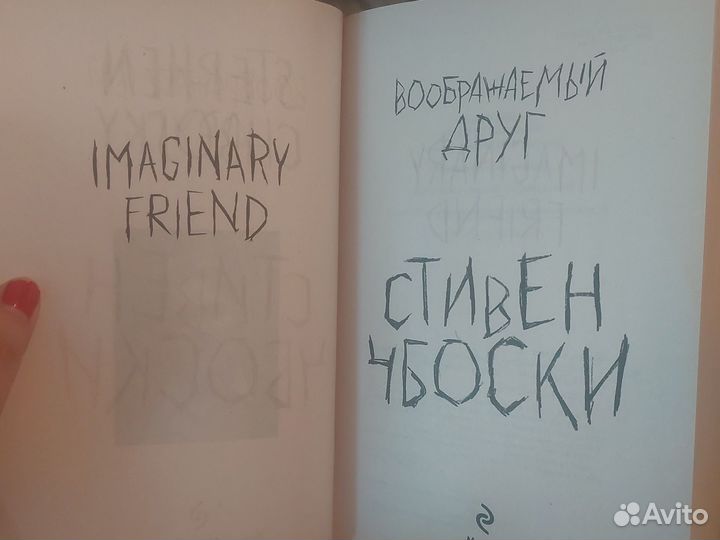 IMAGINARY
FRIEND
ВООБРАЖАЕМЫЙ
ДРУГ
СТИВЕН
ЧБОСКИ
Avito